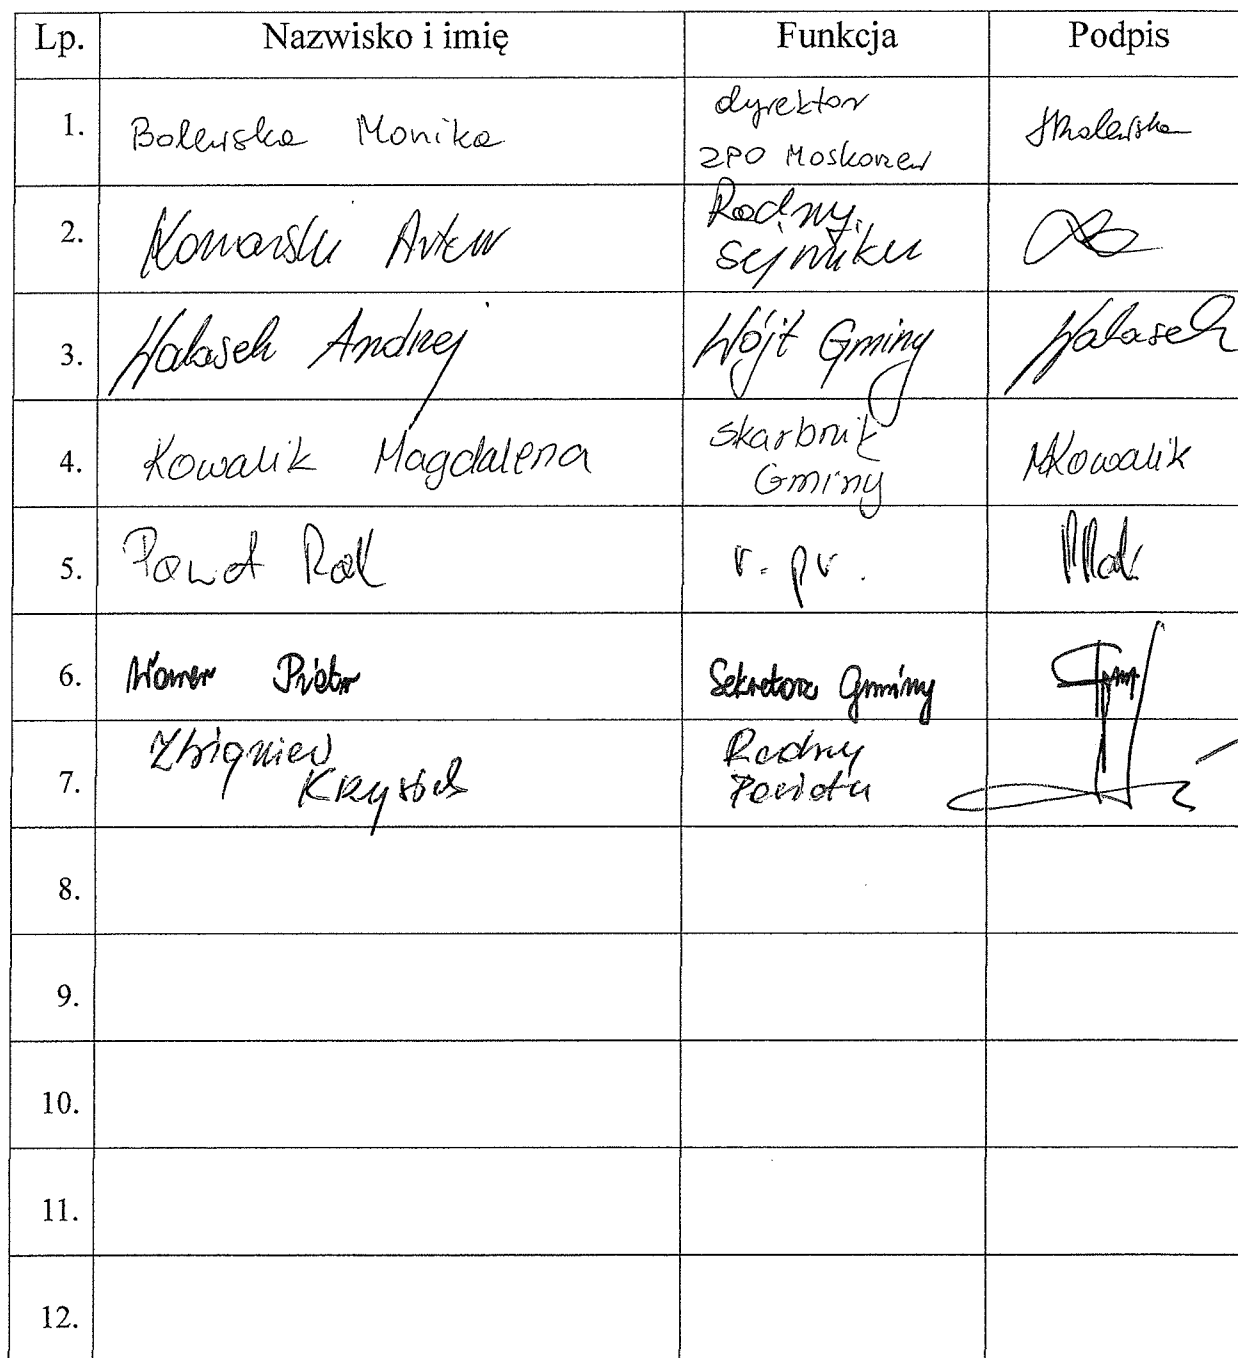 Lp. Nazwisko i imię Funkcja Podpis
1. Bolewska Monika dyrektor
ZPO Moskorzew
2. Konarski Artur Radny
sejmiku
3. Walasek Andrzej Wójt Gminy Walasek
4. Kowalik Magdalena skarbnik
Gminy MKowalik
5. Paweł Rak r. pr.
6. Piotr Sekretarz Gminy
7. Zbigniew
Radny
Powiatu
8.
9.
10.
11.
12.